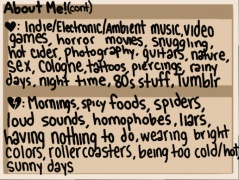 About Me!(cont)
♥: Indie/Electronic/Ambient music, video
games, horror movies, snuggling,
hot cider, photography, guitars, nature,
sex, cologne, tattoos, piercings, rainy
days, night time, 80s stuff, tumblr
💔: Mornings, spicy foods, spiders,
loud sounds, homophobes, liars,
having nothing to do, wearing bright
colors, rollercoasters, being too cold/hot
sunny days